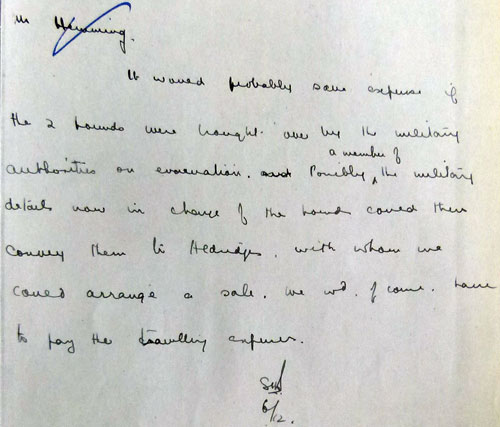 Mr Hemming.
It would probably save expense if
the 2 hounds were brought over by the military
a member of
authorities on evacuation. and Possibly, the military
details now in charge of the hounds could then
convey them to with whom we
could arrange a sale. We wd. of course. have
to pay the travelling expenses.
6/12.